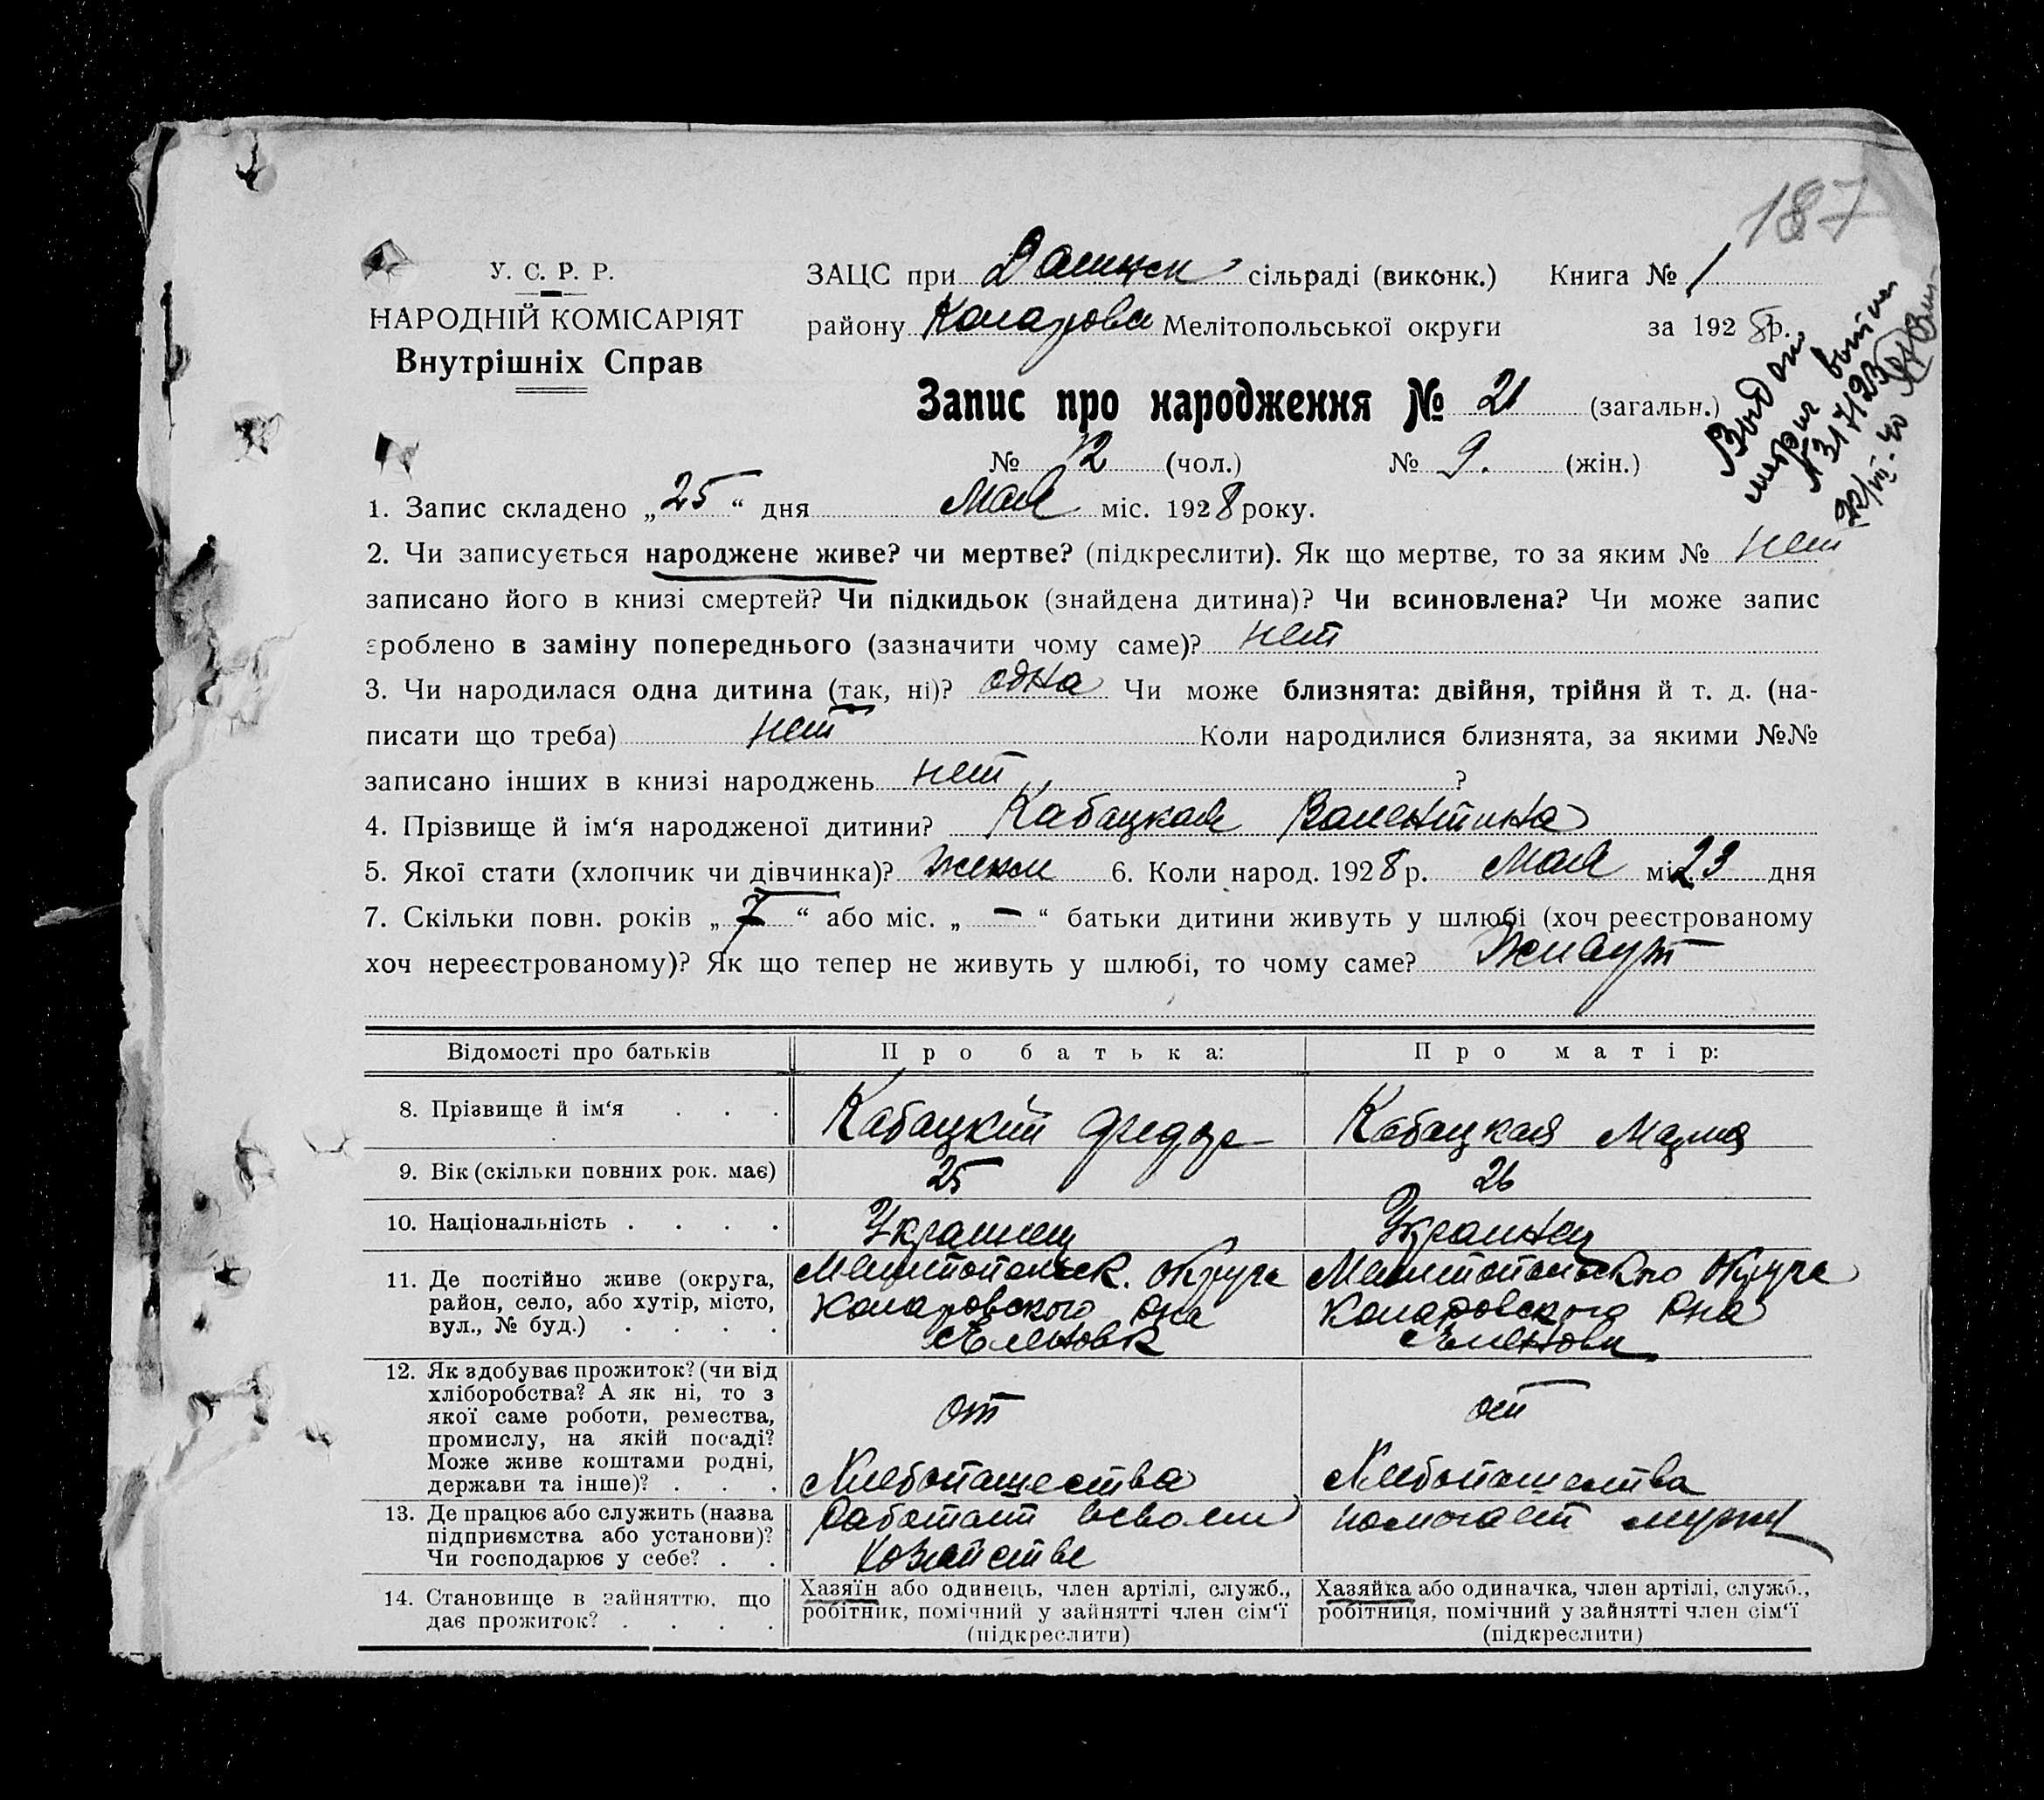 187
У. С. Р. Р.
НАРОДНІЙ КОМІСАРІЯТ
Внутрішніх Справ
ЗАЦС при сільраді (виконк.) Книга № 1
району Коларовск Мелітопольської округи за 1928 р.
Запис про народження № 21 (загальн.)
№ 12 (чол.) № 9. (жін.)
Выдано
1. Запис складено „25“ дня Мая міс. 1928 року.
2. Чи записується народжене живе? чи мертве? (підкреслити). Як що мертве, то за яким № нет
записано його в книзі смертей? Чи підкидьок (знайдена дитина)? Чи всиновлена? Чи може запис
зроблено в заміну попереднього (зазначити чому саме)? нет
3. Чи народилася одна дитина (так, ні)? одна Чи може близнята: двійня, трійня й т. д. (на-
писати що треба) нет Коли народилися близнята, за якими №№
записано інших в книзі народжень нет ?
4. Прізвище й ім‘я народженої дитини? Кабацкая Валентина
5. Якої стати (хлопчик чи дівчинка)? женск 6. Коли народ. 1928 р. Мая міс. 23 дня
7. Скільки повн. років „7“ або міс. „—“ батьки дитини живуть у шлюбі (хоч реєстрованому
хоч нереєстрованому)? Як що тепер не живуть у шлюбі, то чому саме? Живут
Відомості про батьків Про батька: Про матір:
8. Прізвище й ім‘я . . . Кабацкий Федор Кабацкая Мария
9. Вік (скільки повних рок. має) 25 26
10. Національність . . . . Украинец Украинец
11. Де постійно живе (округа, Мелитопольск. округа Мелитопольского округа
район, село, або хутір, місто, Коларовского р-на Коларовского р-на
вул., № буд.) . . . . с Еленовк с Еленовк
12. Як здобуває прожиток? (чи від
хліборобства? А як ні, то з
якої саме роботи, ремества, от от
промислу, на якій посаді?
Може живе коштами родні,
держави та інше)? . . . Хлебопашества Хлебопашества
13. Де працює або служить (назва работает всвоем помогает мужу
підприємства або установи)?
Чи господарює у себе? . . хозяйстве
14. Становище в зайняттю, що Хазяїн або одинець, член артілі, служб., Хазяйка або одиначка, член артілі, служб.,
дає прожиток? . . . . робітник, помічний у зайнятті член сім‘ї робітниця, помічний у зайнятті член сім‘ї
(підкреслити) (підкреслити)